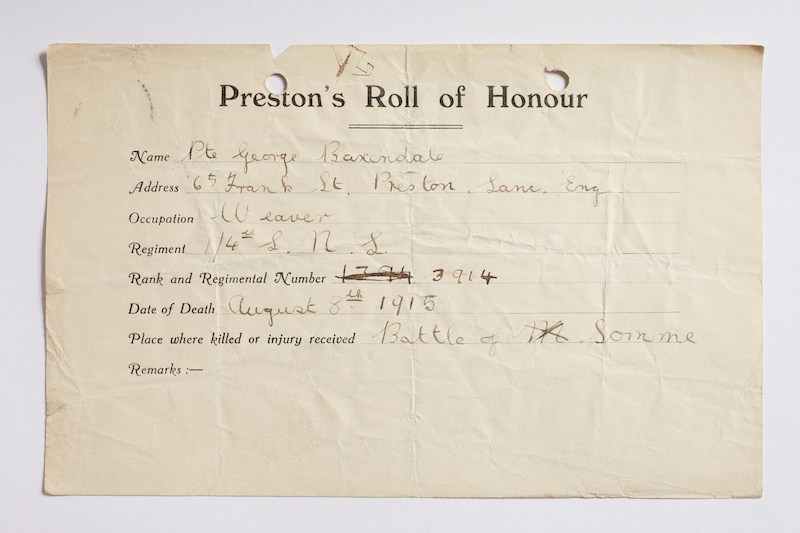 Preston's Roll of Honour
Name Pte George Baxendale
Address 65 Frank St. Preston. Lanc. Eng
Occupation Weaver
Regiment 1/4th L. N. L
Rank and Regimental Number 3914
Date of Death August 8th 1915
Place where killed or injury received Battle of Somme
Remarks :—